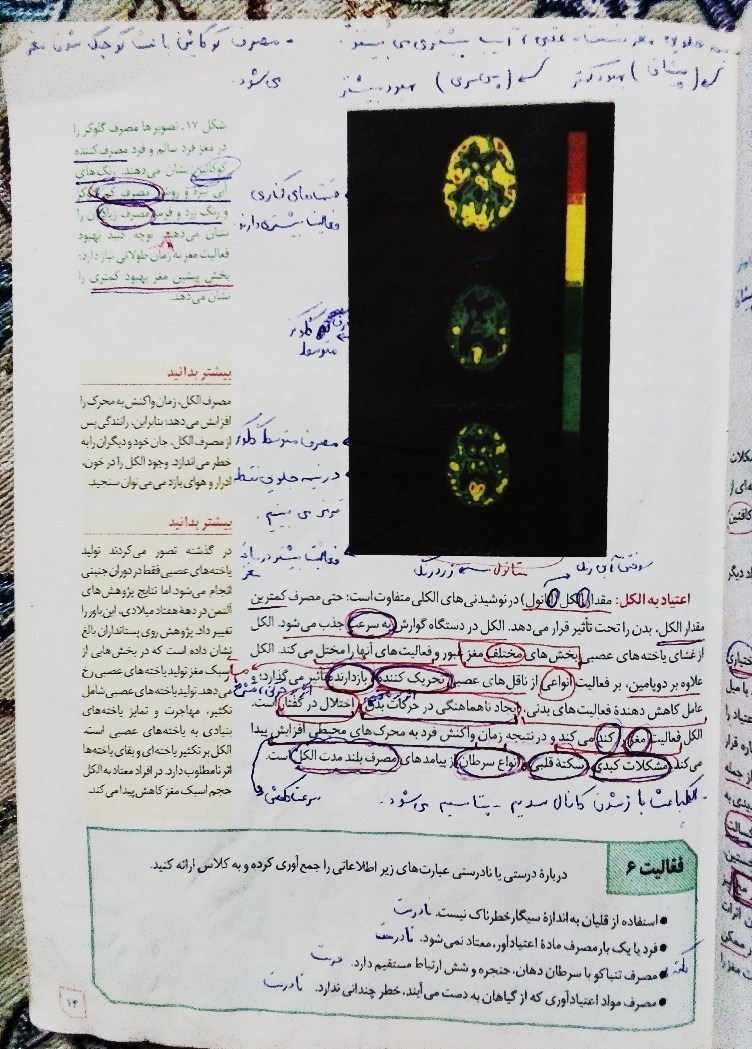 مصرف کوکائین باعث کوچک شدن مغز
می‌شود.
(پیشانی) بهبود کمتر
(پس‌سری) بهبود بیشتر
شکل ۱۷. تصویرها مصرف گلوکز را
در مغز فرد سالم و فرد مصرف‌کننده
کوکائین نشان می‌دهند. رنگ‌های
آبی تیره و روشن مصرف کم گلوکز
و رنگ زرد و قرمز مصرف زیاد آن را
نشان می‌دهند. توجه کنید بهبود
فعالیت مغز به زمان طولانی نیاز دارد؛
بخش پیشین مغز بهبود کمتری را
نشان می‌دهد.
قسمت‌های کناری
فعالیت بیشتری دارند
گلوکز
متوسط
مصرف متوسط گلوکز
در نیمه جلویی نقطه
قرمز می بینیم.
فعالیت بیشتر در میانه
مغز
بیشتر بدانید
مصرف الکل، زمان واکنش به محرک را
افزایش می‌دهد؛ بنابراین، رانندگی پس
از مصرف الکل، جان خود و دیگران را به
خطر می‌اندازد. وجود الکل را در خون،
ادرار و هوای بازدم می‌توان سنجید.
بیشتر بدانید
در گذشته تصور می‌کردند تولید
یاخته‌های عصبی فقط در دوران جنینی
انجام می‌شود. اما نتایج پژوهش‌های
آلتمن در دههٔ هفتاد میلادی، این باور را
تغییر داد. پژوهش روی پستانداران بالغ
نشان داده است که در بخش‌هایی از
مغز تولید یاخته‌های عصبی رخ
می‌دهد. تولید یاخته‌های عصبی شامل
تکثیر، مهاجرت و تمایز یاخته‌های
بنیادی به یاخته‌های عصبی است.
الکل بر تکثیر یاخته‌ای و بقای یاخته‌ها
اثر نامطلوب دارد. در افراد معتاد به الکل
حجم اسبک مغز کاهش پیدا می‌کند.
اعتیاد به الکل: مقدار الکل (اتانول) در نوشیدنی‌های الکلی متفاوت است؛ حتی مصرف کمترین
مقدار الکل، بدن را تحت تأثیر قرار می‌دهد. الکل در دستگاه گوارش به سرعت جذب می‌شود. الکل
از غشای یاخته‌های عصبی بخش‌های مختلف مغز عبور و فعالیت‌های آنها را مختل می‌کند. الکل
علاوه بر دوپامین، بر فعالیت انواعی از ناقل‌های عصبی تحریک کننده و بازدارنده تأثیر می‌گذارد؛ و
عامل کاهش دهندهٔ فعالیت‌های بدنی، ایجاد ناهماهنگی در حرکات بدن و اختلال در گفتار است.
الکل فعالیت مغز را کند می‌کند و در نتیجه زمان واکنش فرد به محرک‌های محیطی افزایش پیدا
می‌کند. مشکلات کبدی، سکتهٔ قلبی و انواع سرطان از پیامدهای مصرف بلند مدت الکل است.
الکل باعث باز شدن کانال سدیم - پتاسیم می‌شود.
فعالیت ۶
دربارهٔ درستی یا نادرستی عبارت‌های زیر اطلاعاتی را جمع‌آوری کرده و به کلاس ارائه کنید.
● استفاده از قلیان به اندازهٔ سیگار خطرناک نیست. نادرست
● فرد با یک بار مصرف مادهٔ اعتیادآور، معتاد نمی‌شود. نادرست
● مصرف تنباکو با سرطان دهان، حنجره و شش ارتباط مستقیم دارد. درست
● مصرف مواد اعتیادآوری که از گیاهان به دست می‌آیند، خطر چندانی ندارد. نادرست
۱۳